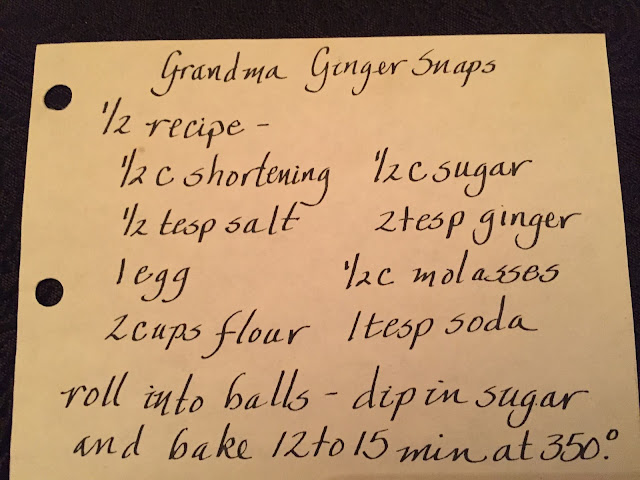 Grandma Ginger Snaps
1/2 recipe -
1/2 c shortening 1/2 c sugar
1/2 tesp salt 2 tesp ginger
1 egg 1/2 c molasses
2 cups flour 1 tesp soda
roll into balls - dip in sugar
and bake 12 to 15 min at 350.°